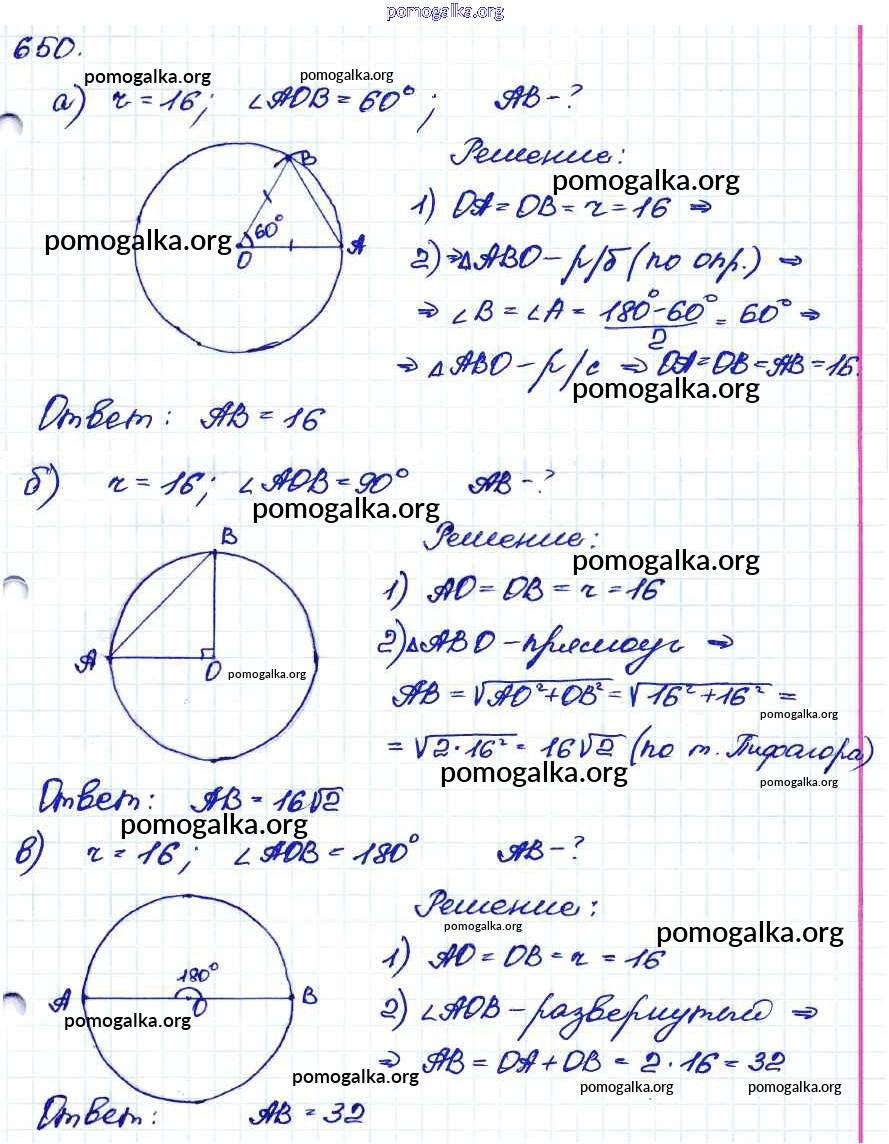 pomogalka.org
650.
pomogalka.org pomogalka.org
а) r = 16; ∠AOB = 60°; AB - ?
Решение:
pomogalka.org
B
1) OA = OB = r = 16 ⇒
60°
pomogalka.org
O A
2) ⇒ △ABO - р/б (по опр.) ⇒
⇒ ∠B = ∠A = (180° - 60°)/2 = 60° ⇒
⇒ △ABO - р/с ⇒ OA = OB = AB = 16.
pomogalka.org
Ответ: AB = 16
б) r = 16; ∠AOB = 90° AB - ?
pomogalka.org
B
Решение:
pomogalka.org
1) AO = OB = r = 16
2) △ABO - прямоуг ⇒
A O
pomogalka.org
AB = √AO² + OB² = √16² + 16² =
pomogalka.org
= √2·16² = 16√2 (по т. Пифагора)
pomogalka.org pomogalka.org
Ответ: AB = 16√2
pomogalka.org
в) r = 16; ∠AOB = 180° AB - ?
Решение:
pomogalka.org
pomogalka.org
1) AO = OB = r = 16
180°
A O B
2) ∠AOB - развернутый ⇒
pomogalka.org
⇒ AB = OA + OB = 2·16 = 32
pomogalka.org pomogalka.org pomogalka.org
Ответ: AB = 32